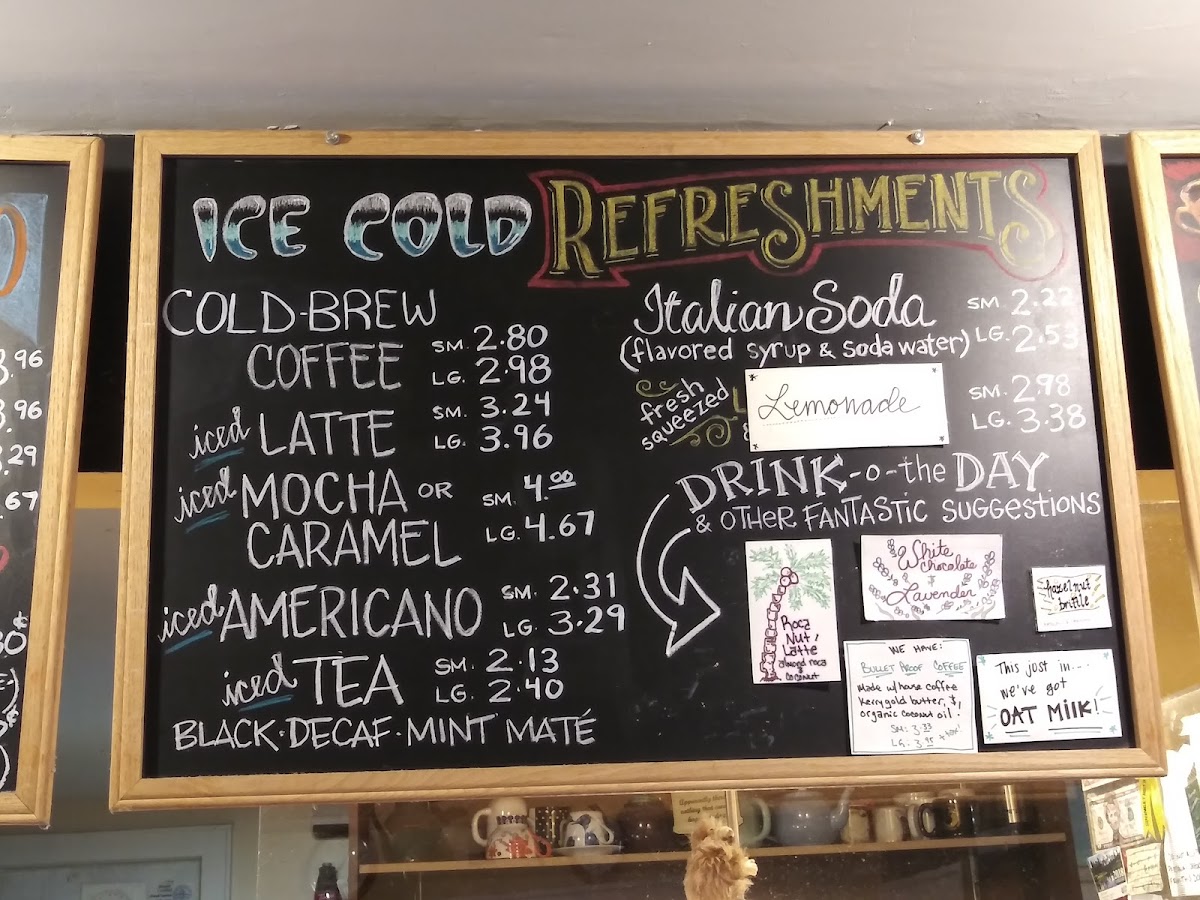 ICE COLD REFRESHMENTS
COLD-BREW
COFFEE
SM. 2.80
LG. 2.98
iced LATTE
SM. 3.24
LG. 3.96
iced MOCHA OR
CARAMEL
SM. 4.00
LG. 4.67
iced AMERICANO
SM. 2.31
LG. 3.29
iced TEA
SM. 2.13
LG. 2.40
BLACK·DECAF·MINT MATÉ
Italian Soda
(flavored syrup & soda water)
SM. 2.22
LG. 2.53
fresh
squeezed
Lemonade
SM. 2.98
LG. 3.38
DRINK-o-the DAY
& OTHER FANTASTIC SUGGESTIONS
Roca
Nut
Latte
almond roca
& coconut
White
Chocolate
&
Lavender
hazelnut
brittle
WE HAVE:
BULLET PROOF COFFEE
Made w/house coffee
Kerrygold butter, &
organic coconut oil.
SM: 3.33
LG: 3.95
This just in....
we've got
OAT MILK!
.96
.96
.29
.67